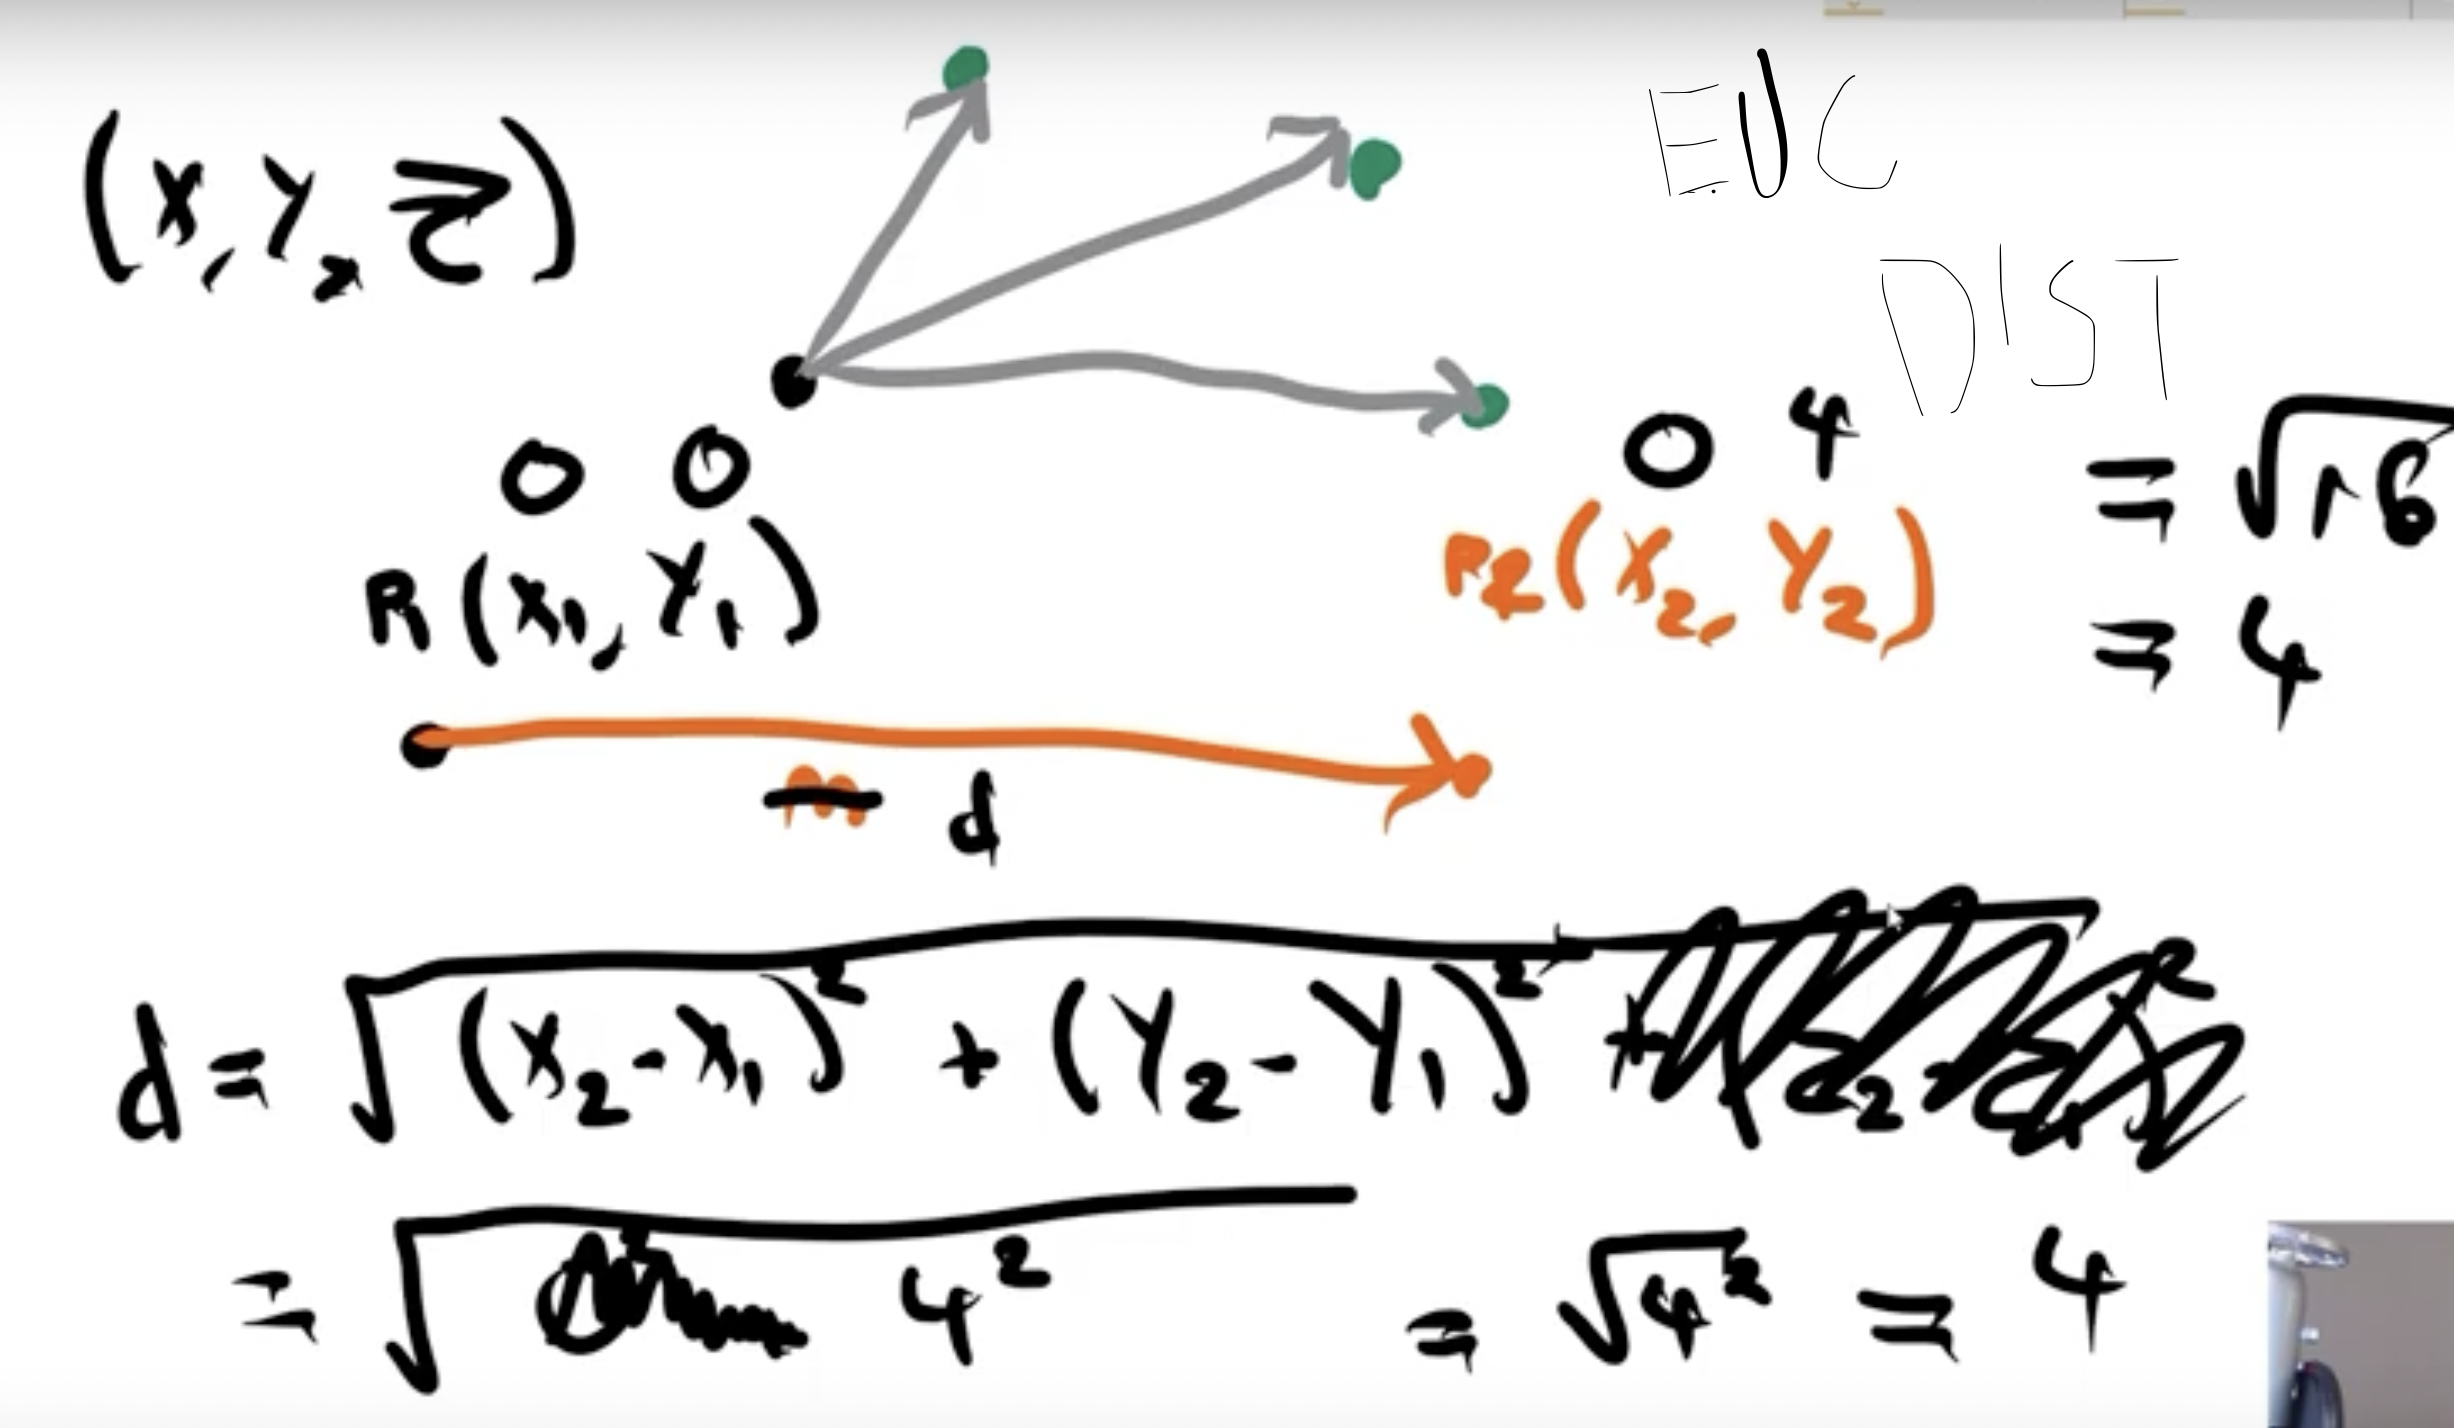 (X, Y, Z)
EUC
DIST
0 0
0 4
= √16
R (X1, Y1)
R2 (X2, Y2)
= 4
d
d = √(X2-X1)² + (Y2-Y1)²
= √4² = √4² = 4